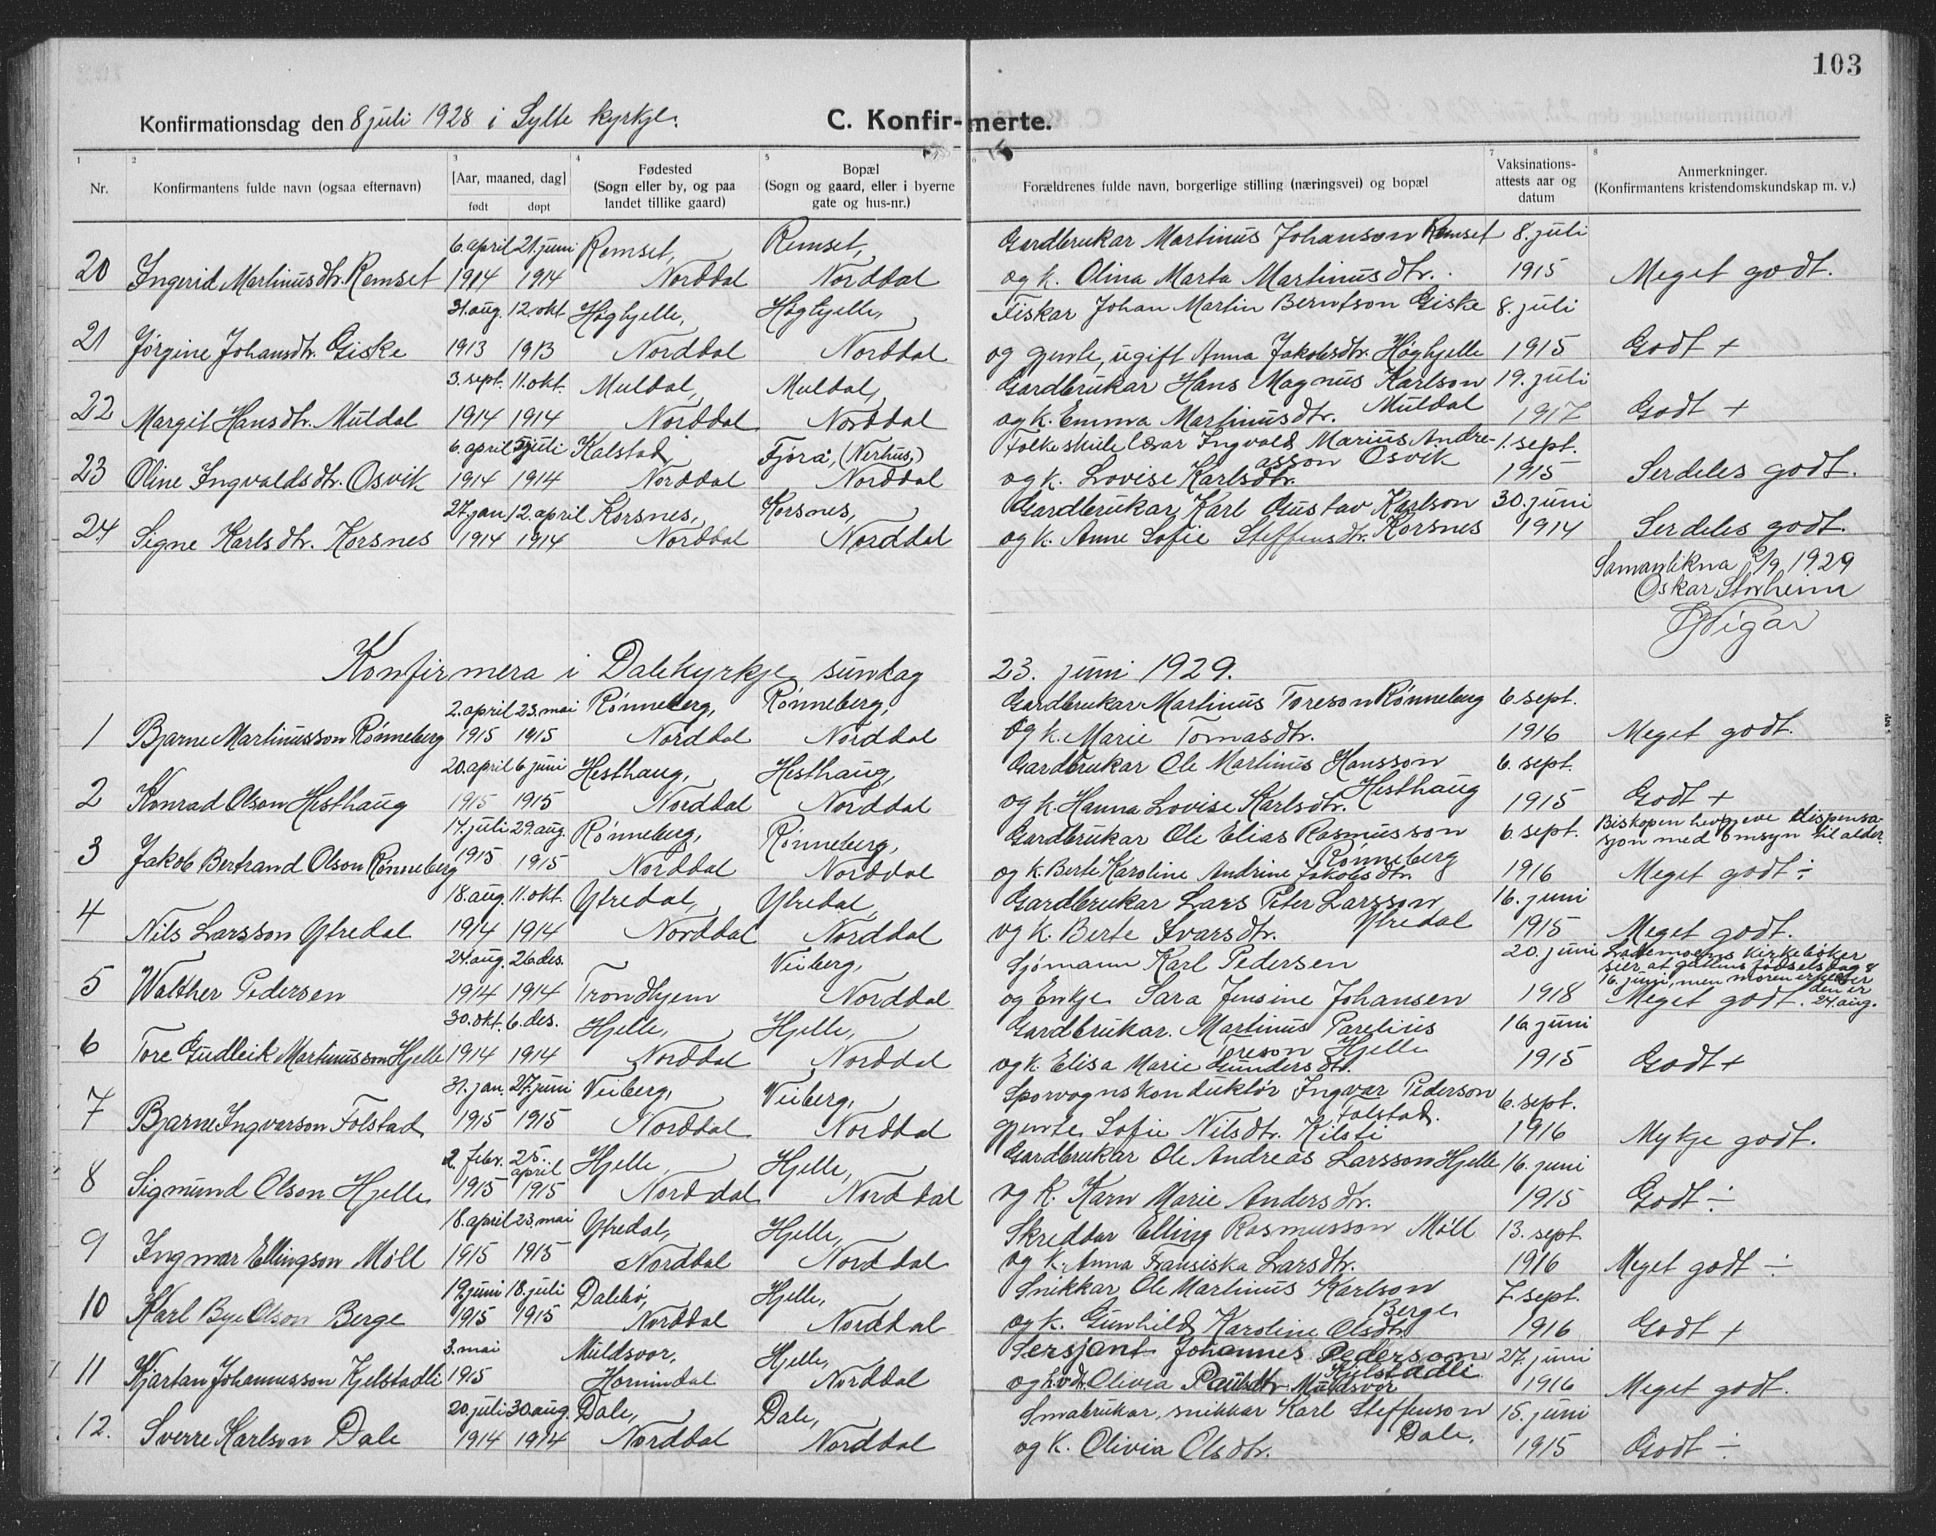 103
Konfirmationsdag den 8 juli 1928 i Sylte kyrkje. C. Konfirmerte.
1 2 3 4 5 6 7 8
Nr. Konfirmantens fulde navn (ogsaa efternavn) [Aar, maaned, dag] født døpt Fødested (Sogn eller by, og paa landet tillike gaard) Bopæl (Sogn og gaard, eller i byerne gate og hus-nr.) Forældrenes fulde navn, borgerlige stilling (næringsvei) og bopæl Vaksinations-attests aar og datum Anmerkninger. (Konfirmantens kristendomskundskap m. v.)
6. april 21. juni Remset, Remset, Gardbrukar Martinus Johanson Remset 8. juli
20 Ingerid Martinusdtr. Remset 1914 1914 Norddal Norddal og k. Olina Marta Martinusdtr. 1915 Meget godt.
31. aug. 12. okt Høghjelle, Høghjelle, Fiskar Johan Martin Berntson Giske 8. juli
21 Jørgine Johansdtr. Giske 1913 1913 Norddal Norddal og gjente, ugift Anna Jakobsdtr. Høghjelle 1915 Godt +
3. sept. 11. okt. Muldal, Muldal, Gardbrukar Hans Magnus Karlson 19. juli
22 Margit Hansdtr. Muldal 1914 1914 Norddal Norddal og k. Emma Martinusdtr. Muldal 1917 Godt +
6. april juli Kalstad, Fjørå, (Nerhus,) Folkeskulelærar Ingvald Marius Andre- 1. sept.
23 Oline Ingvaldsdtr. Osvik 1914 1914 Norddal Norddal og k. Lovise Karlsdtr. asson Osvik 1915 Serdeles godt.
27. jan. 12. april Korsnes, Korsnes, Gardbrukar Karl Gustav Karlson 30. juni
24 Signe Karlsdtr. Korsnes 1914 1914 Norddal Norddal og k. Anne Sofie Steffensdtr. Korsnes 1914 Serdeles godt.
Samanlikna 2/9 1929
Oskar Storheim
Konfirmera i Dalekyrkje sundag 23. juni 1929.
2. april 23. mai Rønneberg, Rønneberg, Gardbrukar Martinus Toreson Rønneberg 6. sept.
1 Bjarne Martinusson Rønneberg 1915 1915 Norddal Norddal og k. Marie Tomasdtr. 1916 Meget godt.
20. april 6. juni Hesthaug, Hesthaug, Gardbrukar Ole Martinus Hansson 6. sept.
2 Konrad Olson Hesthaug 1915 1915 Norddal Norddal og k. Hanna Lovise Karlsdtr. Hesthaug 1915 Godt +
17. juli 29. aug. Rønneberg, Rønneberg, Gardbrukar Ole Elias Rasmusson 6 sept. Biskopen hev gjeve dispensa-
sjon med omsyn til alder.
3 Jakob Bertrand Olson Rønneberg 1915 1915 Norddal Norddal og k. Berte Karoline Andrine Jakobsdtr. Rønneberg 1916 Meget godt ÷
18. aug. 11. okt. Ytredal, Ytredal, Gardbrukar Lars Peter Larsson 16. juni
4 Nils Larsson Ytredal 1914 1914 Norddal Norddal og k. Berte Ivarsdtr. Ytredal 1915 Meget godt.
24. aug. 26. des. Veiberg, Sjømann Karl Pedersen 20. juni Lademoens kirkebøker
sier at guttens fødselsdag er
16. juni, men moren erklærer
den er
24. aug.
5 Walther Pedersen 1914 1914 Trondhjem Norddal og Enkje Sara Jensine Johansen 1918 Meget godt.
30. okt. 6. des. Hjelle, Hjelle, Gardbrukar. Martinus Parelius 16. juni
6 Tore Gudleik Martinusson Hjelle 1914 1914 Norddal Norddal og k. Elisa Marie Gundersdtr. Toreson Hjelle 1915 Godt +
31. jan. 27. juni Veiberg, Veiberg, Sporvognskonduktør Ingvar Pederson 6. sept.
7 Bjarne Ingvarson Folstad 1915 1915 Norddal Norddal gjente Sofie Nilsdtr. Kilsti Folstad. 1916 Mykje godt.
2. febr. 25. april Hjelle, Hjelle, Gardbrukar Ole Andreas Larsson Hjelle 16. juni
8 Sigmund Olson Hjelle 1915 1915 Norddal Norddal og k. Karn Marie Andersdtr. 1915 Godt ÷
18. april 23. mai Ytredal, Hjelle, Skreddar Elling Rasmusson Møll 13. sept.
9 Ingmar Ellingson Møll 1915 1915 Norddal Norddal og k. Anna Fransiska Larsdtr. 1916 Meget godt ÷
19. juni 18. juli Dalebø, Hjelle, Snikkar Ole Martinus Karlson 7. sept.
10 Karl Bye Olson Berge 1915 1915 Norddal Norddal og k. Gunhild Karoline Olsdtr. Berge 1916 Godt +
3. mai Muldsvor, Hjelle, Sersjant Johannes Pederson 27. juni
11 Kjartan Johannesson Kjelstadli 1915 Hornindal Norddal og Olivia Paulsdtr. Muldsvor Kjelstadli 1916 Meget godt.
20. juli 30. aug. Dale, Dale, Småbrukar, snikkar Karl Steffenson 15. juni
12. Sverre Karlson Dale 1914 1914 Norddal Norddal og k. Olivia Olsdtr. Dale, 1915 Godt ÷